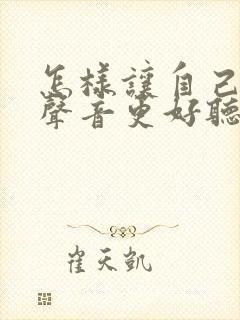 怎樣讓自己
聲音更好聽
崔天凱